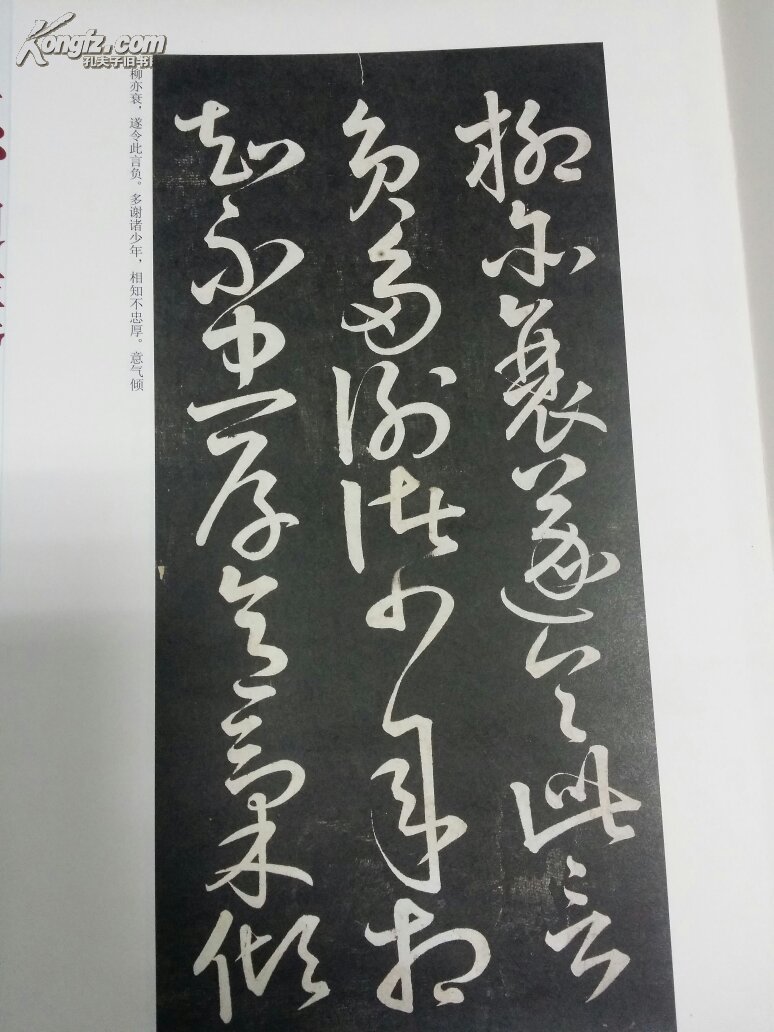 柳亦衰遂令此言
負多謝諸少年相
知不忠厚意氣傾
柳亦衰，遂令此言负。多谢诸少年，相知不忠厚。意气倾
Kongfz.com
孔夫子旧书网